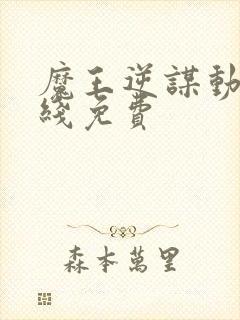 魔王逆謀動
綫免費
森本萬里